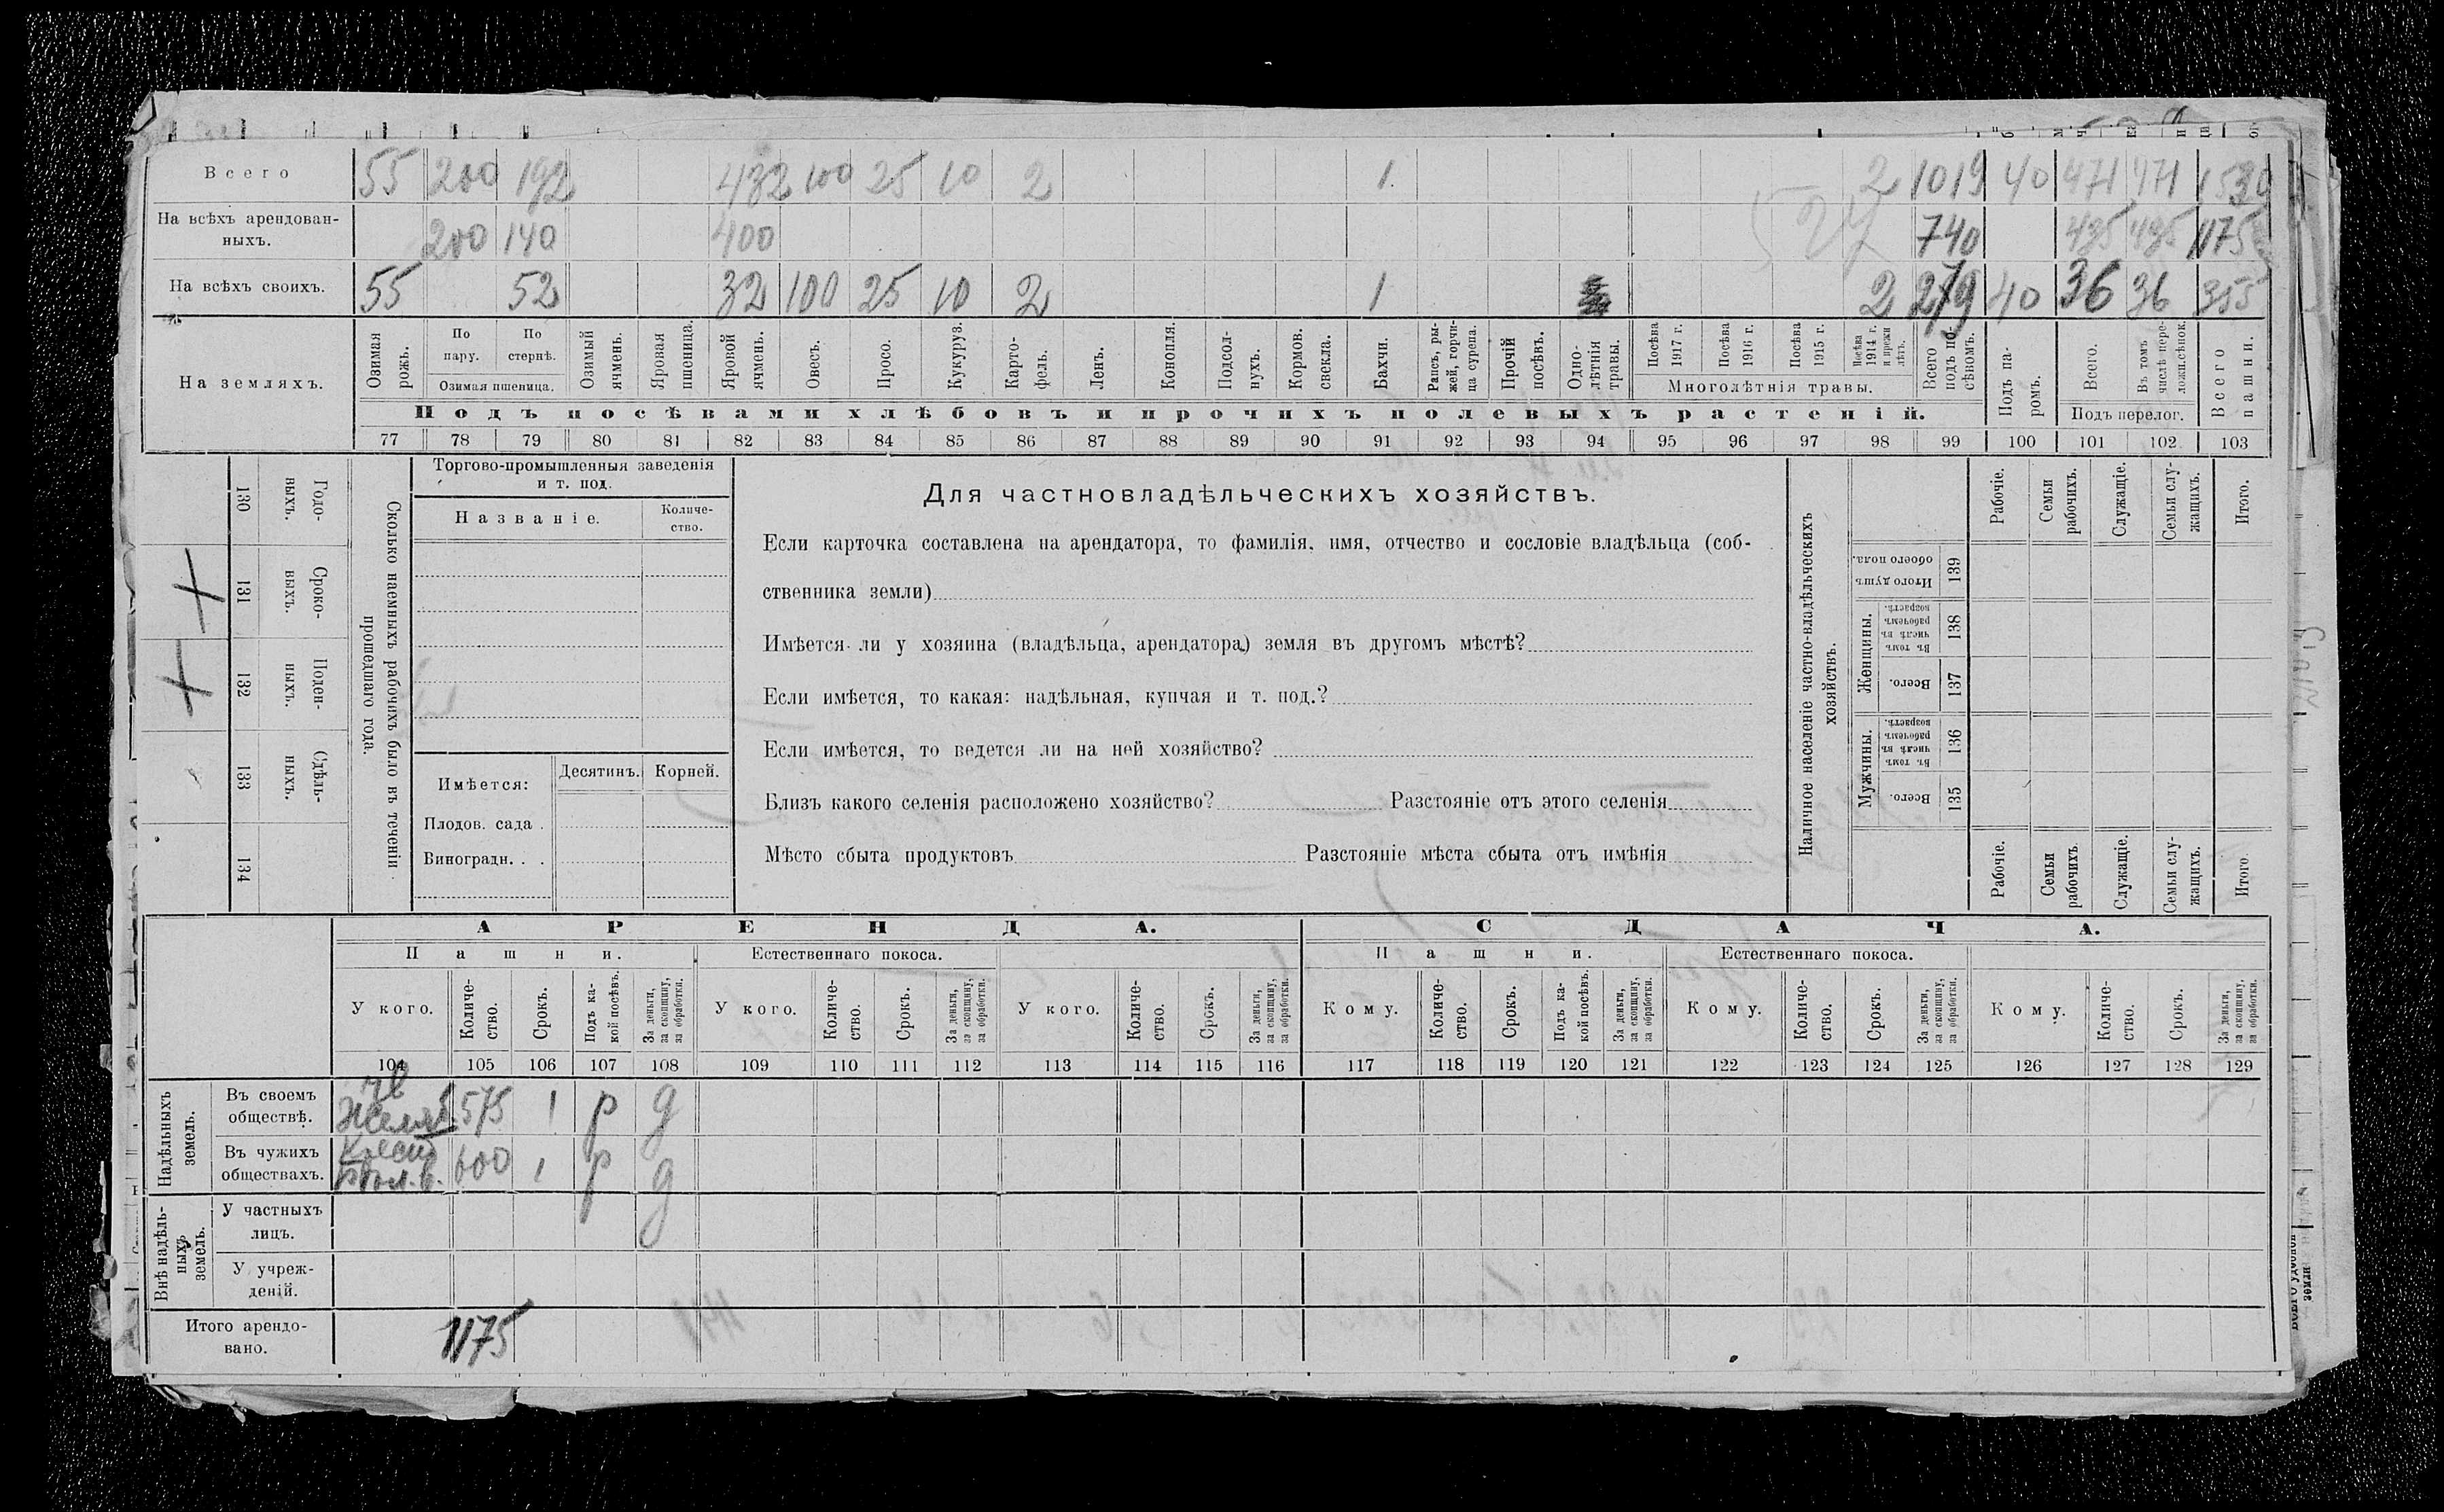 Всего 55 200 192 432 100 25 10 2 1 2 1019 40 471 471 1530
На всѣхъ арендован-
ныхъ. 200 140 400 740 435 435 1175
527
На всѣхъ своихъ. 55 52 32 100 25 10 2 1 2 279 40 36 36 355
На земляхъ.
Озимая
рожь.
По
пару.
По
стернѣ.
Озимая пшеница.
Озимый
ячмень.
Яровая
пшеница.
Яровой
ячмень.
Овесъ.
Просо.
Кукуруз.
Карто-
фель.
Ленъ.
Конопля.
Подсол-
нухъ.
Кормов.
свекла.
Бахчи.
Рапсъ, ры-
жей, горчи-
ца сурепа.
Прочій
посѣвъ.
Одно-
лѣтнія
травы.
Посѣва
1917 г.
Посѣва
1916 г.
Посѣва
1915 г.
Посѣва
1914 г.
и прежн
лѣтъ.
Многолѣтнія травы.
Всего
подъ по-
сѣвомъ.
Подъ па-
ромъ.
Всего.
Въ томъ
числѣ пере-
ложн.сѣнок.
Подъ перелог.
Всего
пашни.
Подъ посѣвами хлѣбовъ и прочихъ полевыхъ растеній.
77 78 79 80 81 82 83 84 85 86 87 88 89 90 91 92 93 94 95 96 97 98 99 100 101 102 103
130
Годо-
выхъ.
131
Сроко-
выхъ.
132
Поден-
ныхъ.
133
Сдѣль-
ныхъ.
134
Сколько наемныхъ рабочихъ было въ теченіи
прошедшаго года.
Торгово-промышленныя заведенія
и т. под.
Названіе.
Количе-
ство.
Имѣется:
Десятинъ.
Корней.
Плодов. сада .
Виноградн. . .
Для частновладѣльческихъ хозяйствъ.
Если карточка составлена на арендатора, то фамилія, имя, отчество и сословіе владѣльца (соб-
ственника земли)
Имѣется ли у хозяина (владѣльца, арендатора) земля въ другомъ мѣстѣ?
Если имѣется, то какая: надѣльная, купчая и т. под.?
Если имѣется, то ведется ли на ней хозяйство?
Близъ какого селенія расположено хозяйство? Разстояніе отъ этого селенія
Мѣсто сбыта продуктовъ Разстояніе мѣста сбыта отъ имѣнія
Наличное населеніе частно-владѣльческихъ
хозяйствъ.
Рабочіе.
Семьи
рабочихъ.
Служащіе.
Семьи слу-
жащихъ.
Итого.
Итого душъ
обоего пола.
139
Женщины.
Въ томъ
числѣ въ
рабочемъ
возрастѣ.
138
Всего.
137
Мужчины.
Въ томъ
числѣ въ
рабочемъ
возрастѣ.
136
Всего.
135
Рабочіе.
Семьи
рабочихъ
Служащіе.
Семьи слу-
жащихъ.
Итого.
АРЕНДА.
СДАЧА.
Пашни.
Естественнаго покоса.
Пашни.
Естественнаго покоса.
У кого.
Количе-
ство.
Срокъ.
Подъ ка-
кой посѣвъ.
За деньги,
за скопщину,
за обработки.
У кого.
Количе-
ство.
Срокъ.
За деньги,
за скопщину,
за обработки.
У кого.
Количе-
ство.
Срокъ.
За деньги,
за скопщину,
за обработки.
Кому.
Количе-
ство.
Срокъ.
Подъ ка-
кой посѣвъ.
За деньги,
за скопщину,
за обработки.
Кому.
Количе-
ство.
Срокъ.
За деньги,
за скопщину,
за обработки.
Кому.
Количе-
ство.
Срокъ.
За деньги,
за скопщину,
за обработки.
104 105 106 107 108 109 110 111 112 113 114 115 116 117 118 119 120 121 122 123 124 125 126 127 128 129
Надѣльныхъ
земель.
Въ своемъ
обществѣ. 575 1 р д
Въ чужихъ
обществахъ. 600 1 р д
Внѣ надѣль-
ныхъ
земель.
У частныхъ
лицъ.
У учреж-
деній.
Итого арендо-
вано. 1175
земли